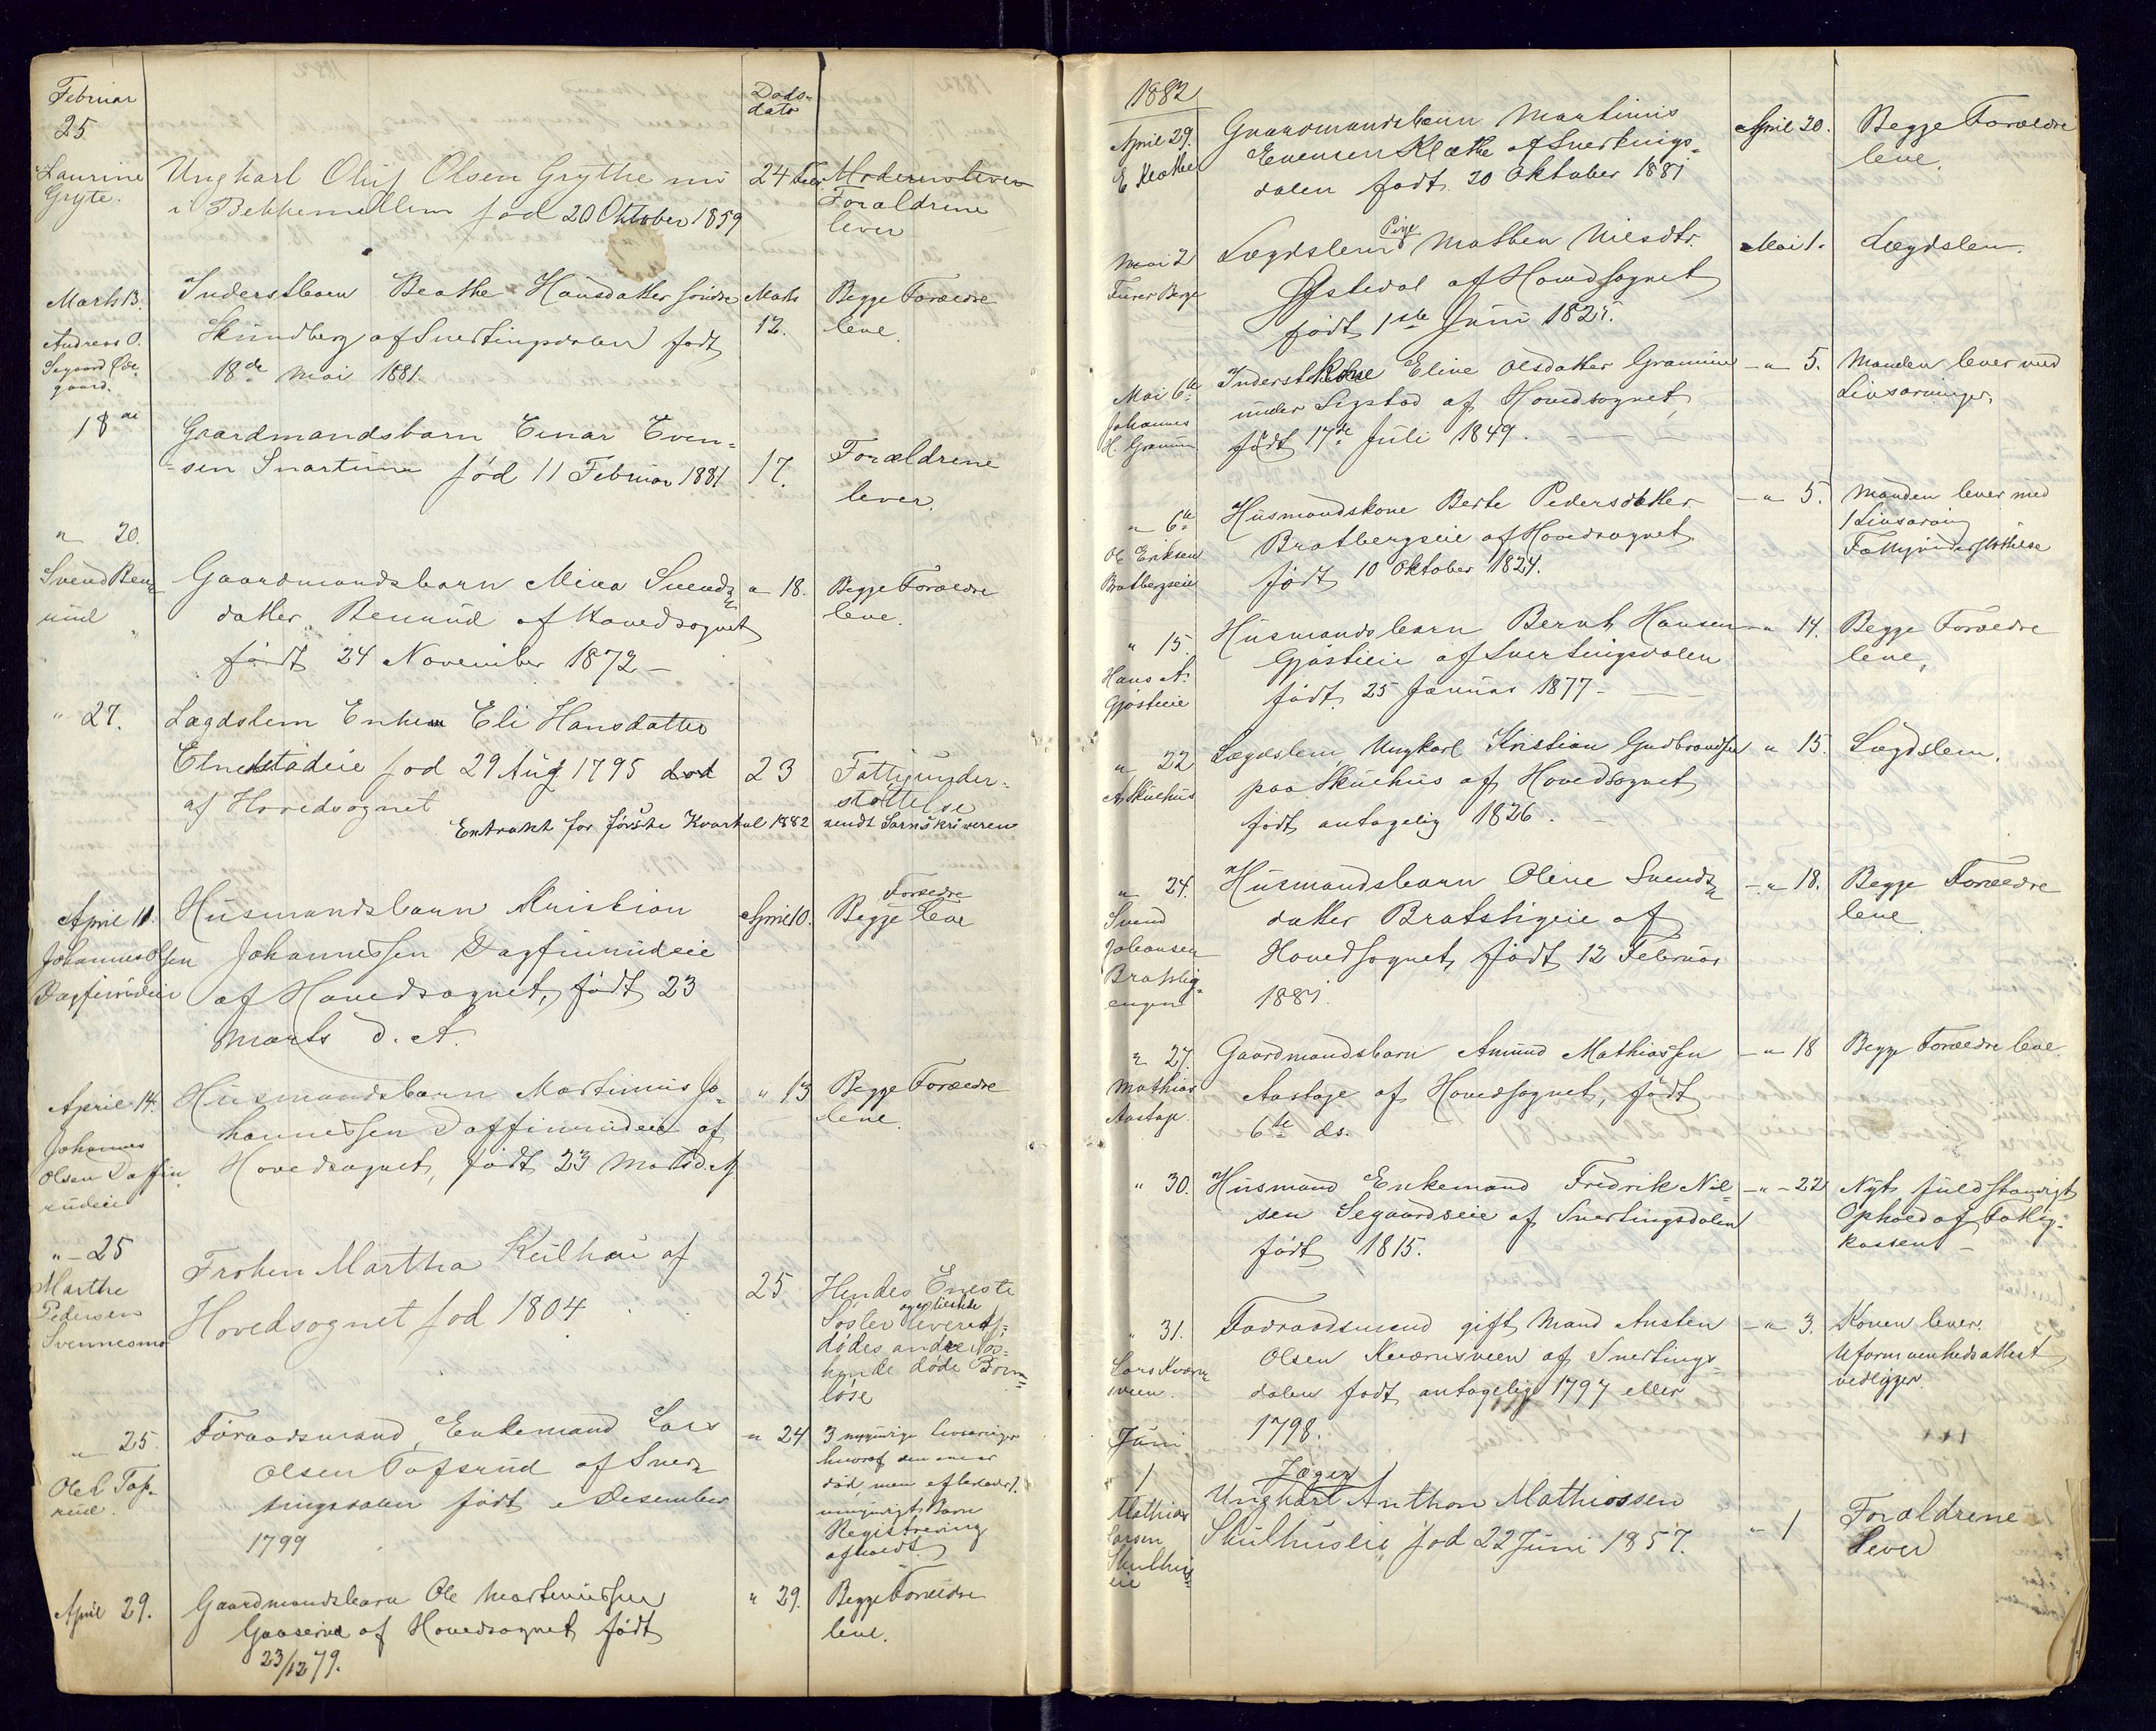 Februar
25
Døds-
dato
Laurine
Gryte.
Ungkarl Oluf Olsen Grythe nu
i Bekkemellem fød 20 Oktober 1859
24 Febr
Moderen lever
Forældrene
lever
Marts 13.
Andreas O.
Inderstbarn Beathe Hansdatter søndre
Skundberg af Snertingsdalen født
18de Mai 1881.
Marts
12.
Begge Forældre
leve.
18de
Gaardmandsbarn Einar Even-
sen Snartum fød 11 Februar 1881
17.
Forældrene
lever.
" 20.
Svend Ben-
rud
Gaardmandsbarn Mina Svends-
datter Benrud af Hovedsognet
født 24 November 1872 –
" 18.
Begge Forældre
leve.
" 27.
Lægdslem Enken Eli Hansdatter
Elnestadeie fød 29 Aug 1795 død
af Hovedsognet
23
Fattigunder-
støttelse
Extrakt for første Kvartal 1882
sendt Sorenskriveren
April 11
Johannes Olsen
Dagfinrudeie
Husmandsbarn Kristian
Johannessen Dagfinrudeie
af Hovedsognet, født 23
Marts d. A.
April 10.
Forældre
Begge leve
April 14.
Johannes
Olsen Daffin
rudeie
Husmandsbarn Martinius Jo-
hannessen Daffinrudeie af
Hovedsognet, født 23 Marts d. A.
" 13
Begge Forældre
leve.
" 25
Marthe
Pedersen
Svennesmo
Frøken Martha Keilhau af
Hovedsognet fød 1804
25
Hendes Eneste
Søster lever af-
dødes andre Søs-
kende døde Barn-
løse
" 25.
Ole L Tof-
rud.
Føraadsmand, Enkemand Lars
Olsen Tofsrud af Sner-
tingsdalen født Desember
1799
" 24
3 myndige Livsarvinger
hvoraf den ene er
død, men efterladt 1
umyndigt Barn
Registrering
afholdt.
April 29.
Gaardmandsbarn Ole Martiniussen
Gaaserud af Hovedsognet født
23/12 79.
" 29.
Begge Forældre
leve.
1882
April 29.
E Kløthe
Gaardmandsbarn Martinius
Evensen Kløthe af Snertings-
dalen født 20 Oktober 1881
April 20.
Begge Forældre
leve.
Mai 2
Furer Berge
Lægdslem Pige Mathea Nilsdtr.
Østedal af Hovedsognet
født 1ste Juni 1821.
Mai 1.
Lægdslem.
Mai 6te
Johannes
H. Gramm
Inderstkone Eline Olsdatter Grammen
under Sigstad af Hovedsognet,
født 17de Juli 1849.
" 5.
Manden lever med
Livsarvinger.
" 6te
Ole Eriksen
Bratbergseie
Husmandskone Berte Pedersdatter
Bratbergseie af Hovedsognet
født 10 Oktober 1824.
" 5.
Manden lever med
1 Livsarving
Fattigunderstøttelse
" 15.
Hans A.
Gjøstieie
Husmandsbarn Bernt Hansen
Gjøstieie af Snertingsdalen
født 25 Januar 1877 –
" 14.
Begge Forældre
leve,
" 22
A. Skulhus
Lægdslem, Ungkarl Kristian Gudbrandsen
paa Skulhus af Hovedsognet
født antagelig 1826.
" 15.
Lægdslem.
" 24.
Svend
Johansen
Bratslig-
engen
Husmandsbarn Oline Svends-
datter Bratsligeie af
Hovedsognet, født 12 Februar
1881.
" 18.
Begge Forældre
leve
" 27.
Mathias
Aastage
Gaardmandsbarn Amund Mathiassen
Aastage af Hovedsognet, født
6te ds.
" 18
Begge Forældre leve.
" 30.
Husmand Enkemand Fredrik Nil-
sen Segaardseie af Snertingsdalen
født 1815.
" 22
Nyt fuldstændigt
Ophold af Fattig-
kassen –
" 31.
Lars Kværn-
sveen.
Føraadsmand gift Mand Austen
Olsen Kværnsveen af Snertings-
dalen født antagelig 1797 eller
1798.
" 3.
Konen lever.
Uformuenhedsattest
vedligger.
Juni
1
Mathias
Larsen
Skulhus-
eie
Jæger
Ungkarl Anthon Mathiassen
Skulhuseie fød 22 Juni 1857.
" 1
Forældrene
Lever